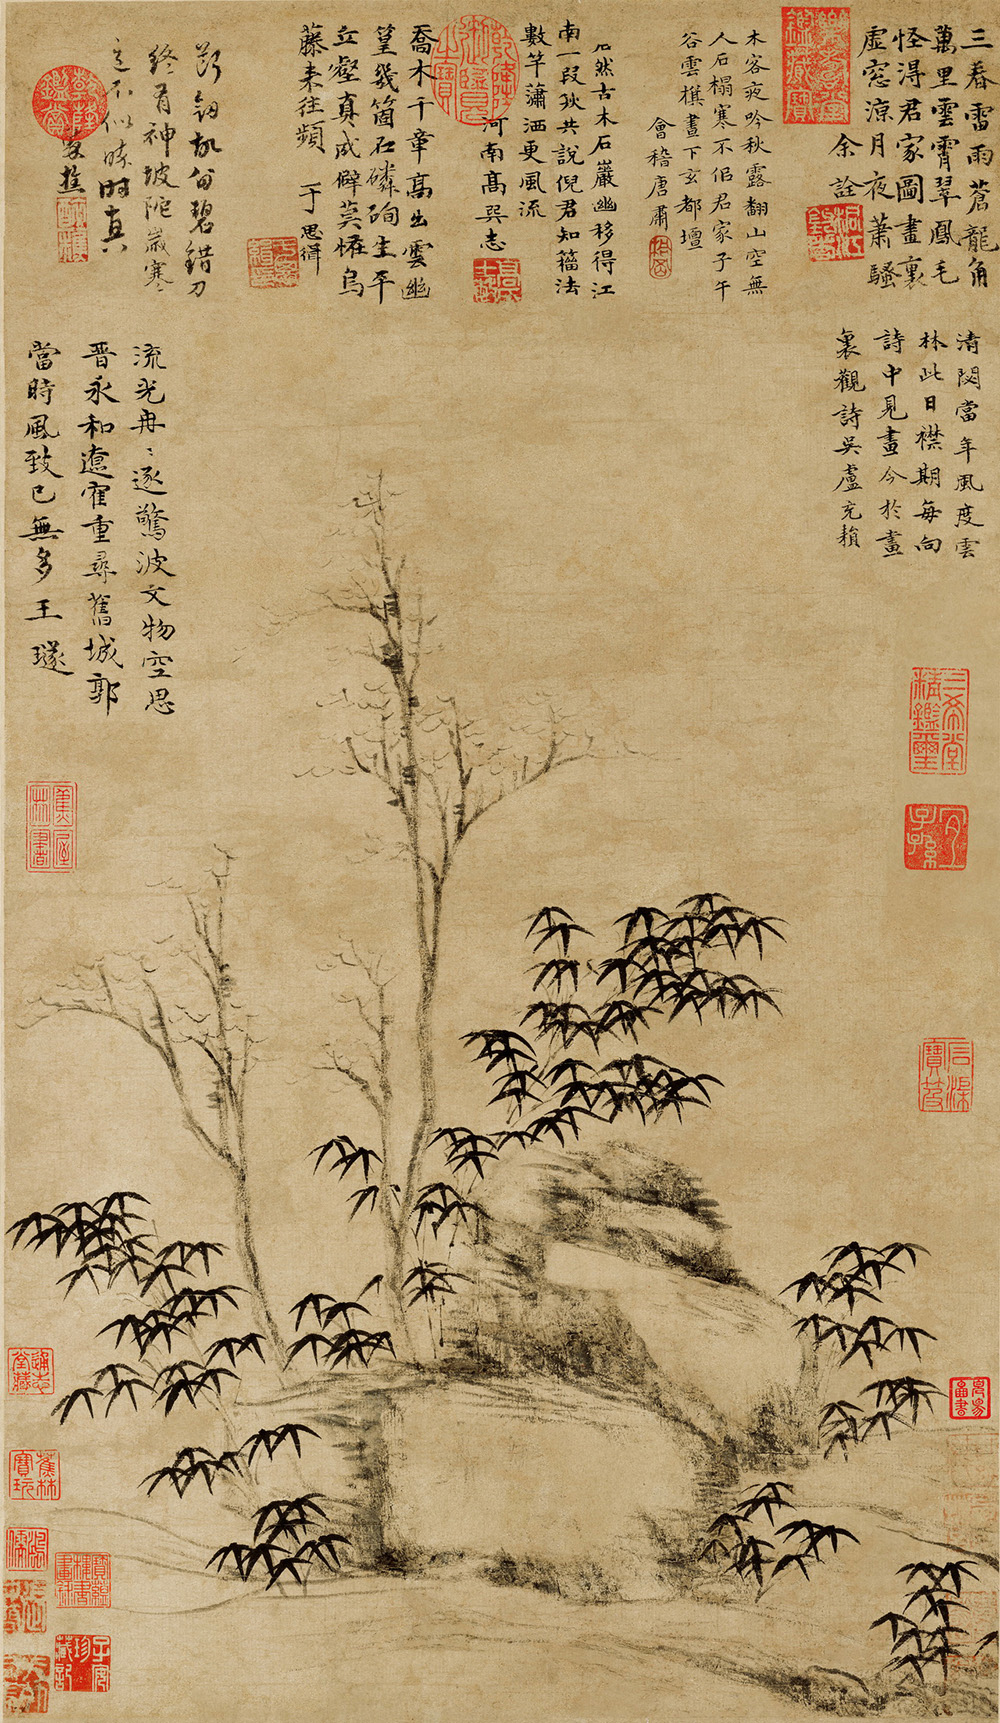 三春雷雨蒼龍角
萬里雲霄翠鳳毛
怪得君家圖畫裏
虛窓涼月夜蕭騷
余詮
木客夜吟秋露翻山空無
人石榻寒不佀君家子午
谷雲模晝下玄都壇
會稽唐肅
古木石巖幽移得江
南一段秋共說倪君知籀法
數竿瀟洒更風流
河南高巽志
喬木千章高出雲幽
篁幾箇石磷硐生平
立壑真成僻莫怪烏
藤来往頻
于思緝
碧錯刀
終有神坡陀歲寒
時真
清閟當年風度雲
林此日襟期每向
詩中見畫今於畫
裏觀詩吳盧充頛
流光冉〻逐驚波文物空思
晉永和遼隺重尋舊城郭
當時風致已無多王璲
乾隆御覽之寶
乾隆鑑賞
三希堂精鑑璽
宜子孫
石渠寶笈
蕉林書屋
蕉林寶玩